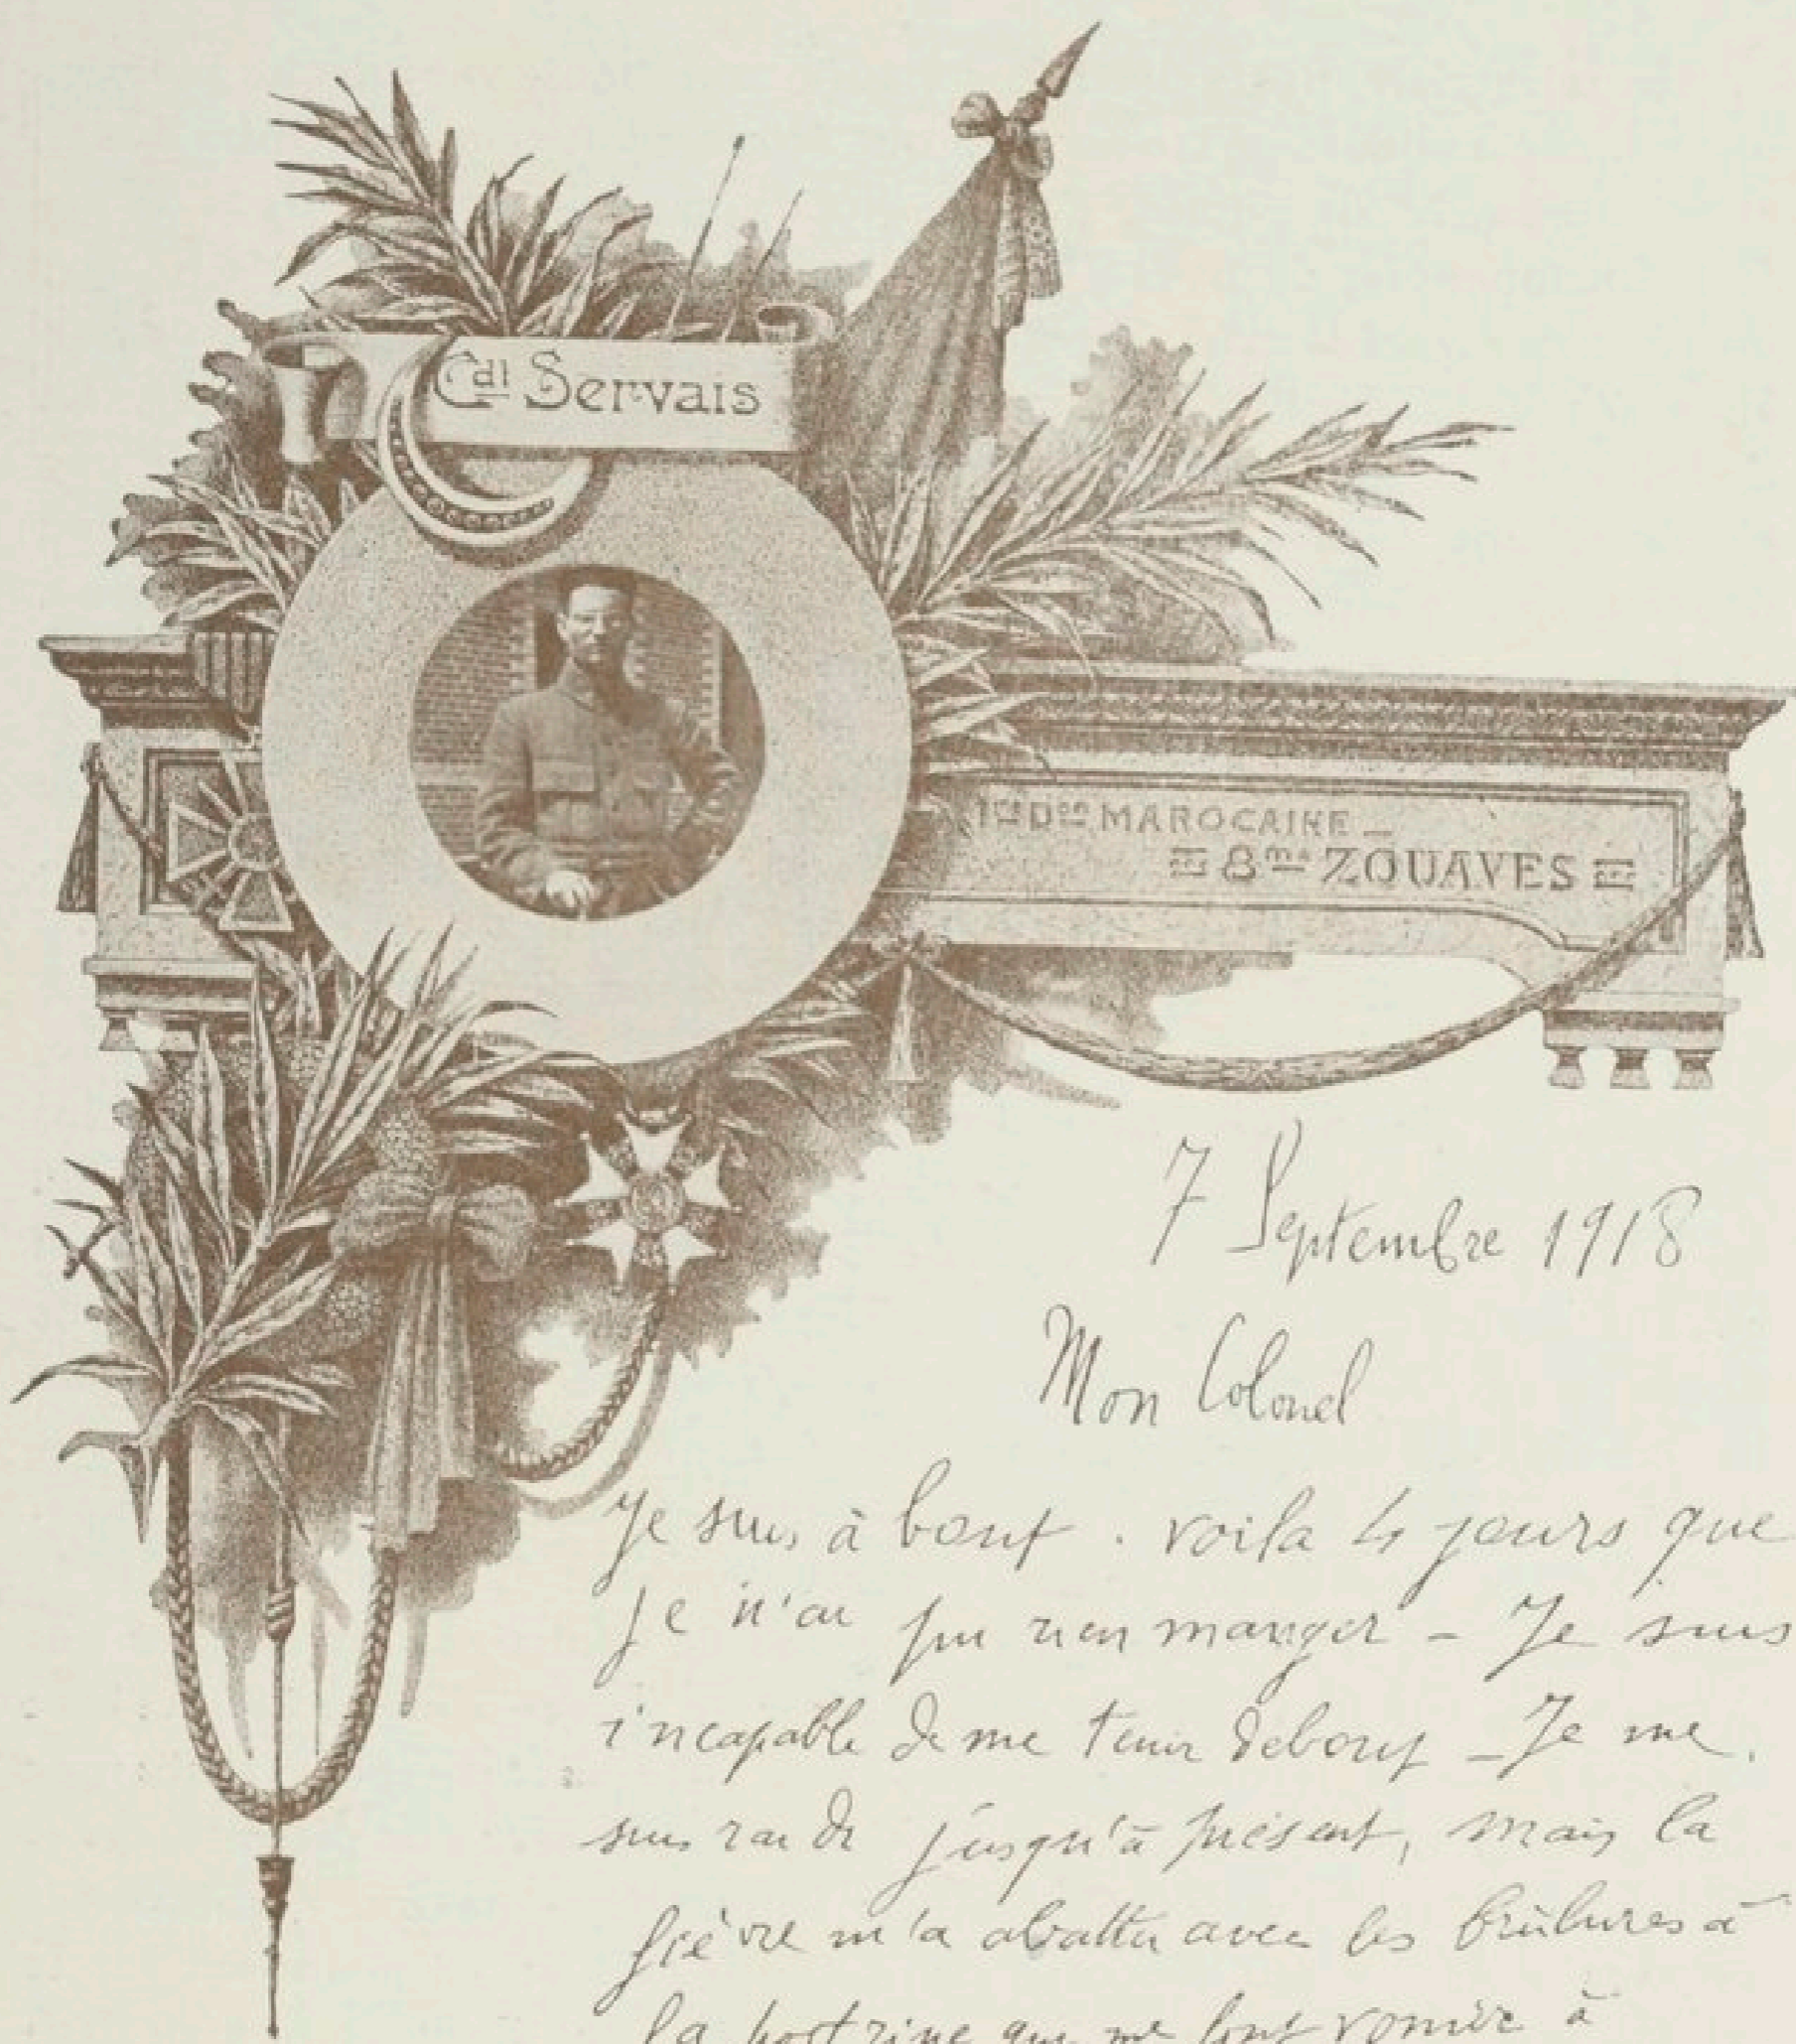 Cdt Servais
1ère Don MAROCAINE _
8me ZOUAVES
7 Septembre 1918
Mon Colonel
Je suis à bout . voila 4 jours que
je n'ai pu rien manger - Je suis
incapable de me tenir debout - Je me
suis raidi jusqu'à présent, mais la
fièvre m'a abattu avec les brûlures à
la poitrine qui me font vomir à